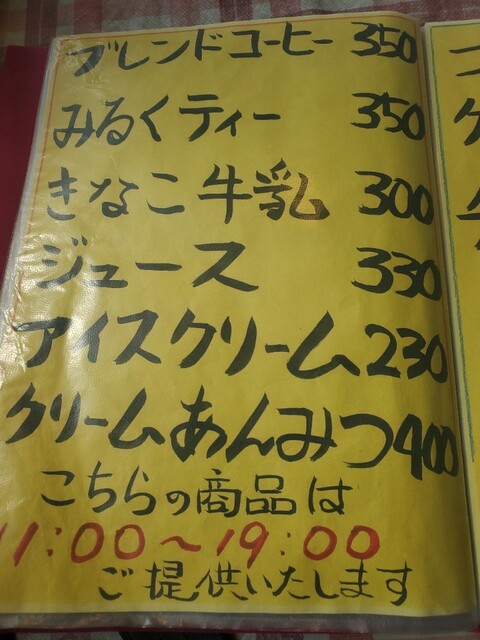 ブレンドコーヒー 350
みるくティー 350
きなこ牛乳 300
ジュース 330
アイスクリーム 230
クリームあんみつ 400
こちらの商品は
11:00~19:00
ご提供いたします